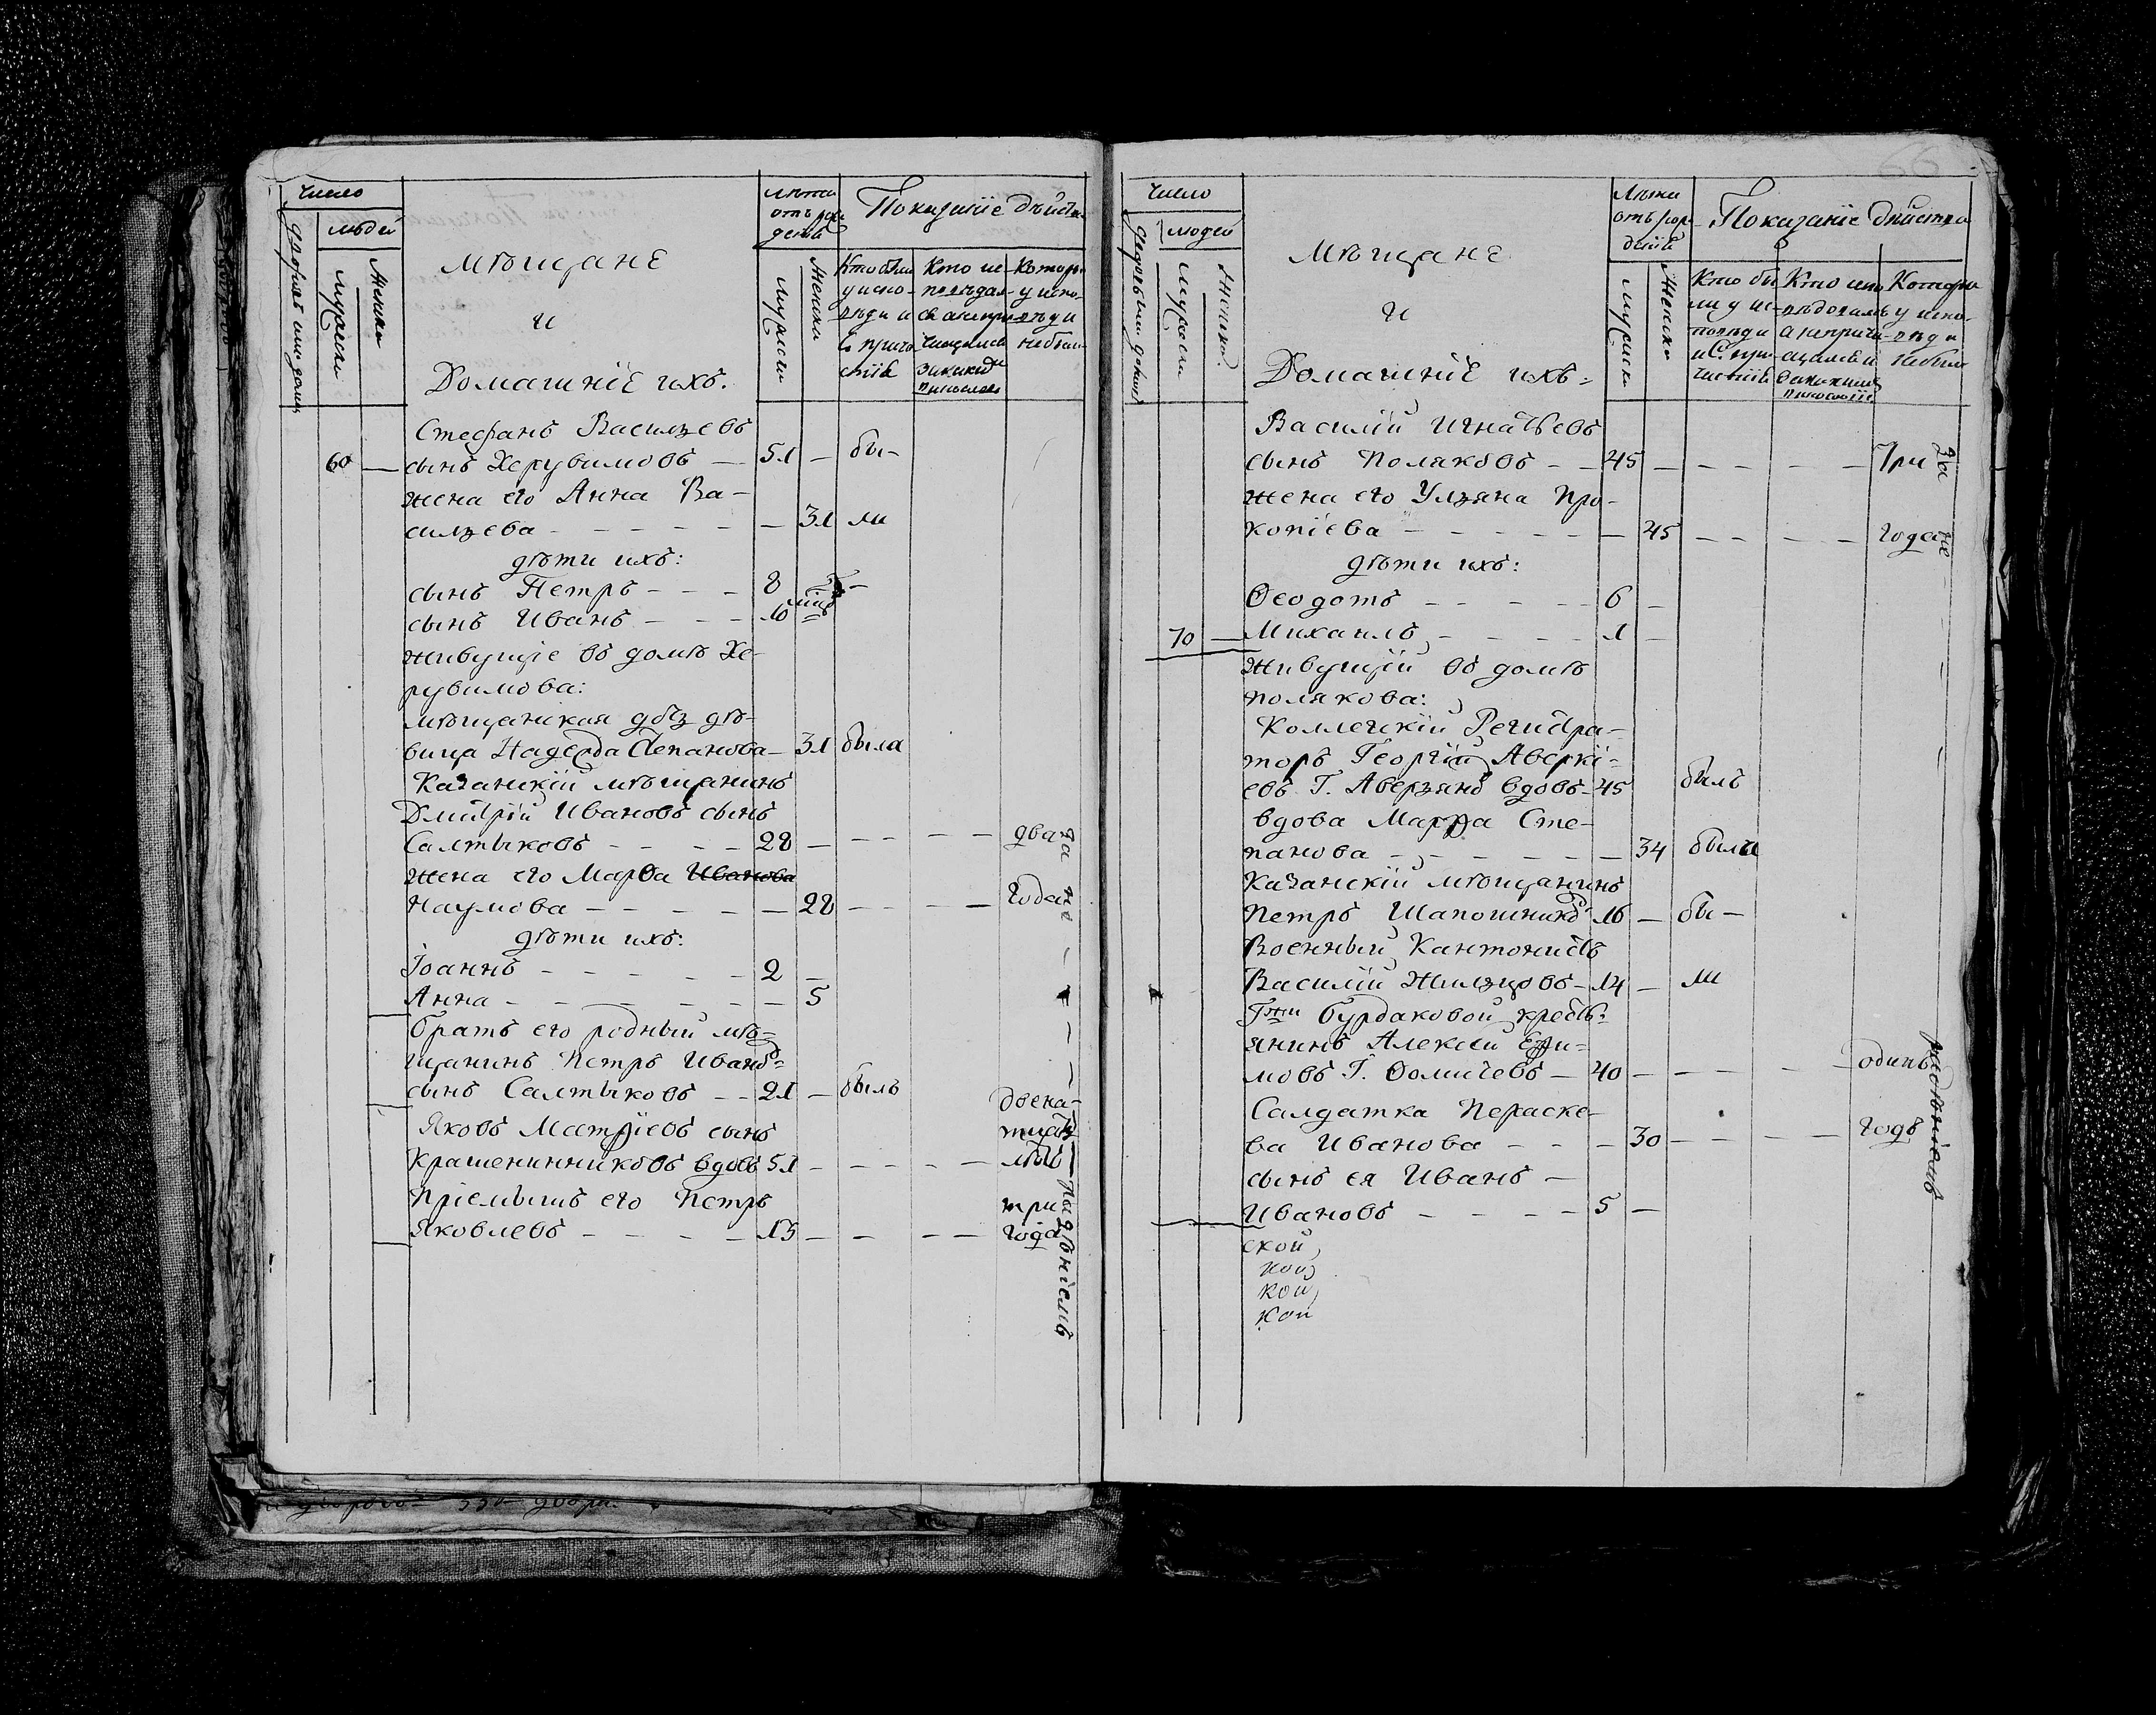 Число
людей
дворовъ или домовъ
мужеска
Женска
Мѣщане
и
Домашнїе ихъ.
лѣта
отъ рож
денїя
мужеска
Женска
Показанїе дѣйств
Кто были
у испо-
вѣди и
С. прича
стїя
Кто ис-
повѣдал-
ся а непри
чащался
Котори
у испо-
вѣди
небыли
Стефанъ Васильевъ
60 — сынъ Херувимовъ — 51 — бы-
жена его Анна Ва-
сильева - - - - - — 31 ли
дѣти ихъ:
сынъ Петръ - - - 8 —
сынъ Иванъ - - - 10 мцъ
живущїе въ домѣ Хе-
рувимова:
мѣщанская дочь дѣ-
вица Надежда Степанова — 31 была
Казанскїй мѣщанинъ
Дмитрїй Ивановъ сынъ
Салтыковъ - - - - 28 — - - - — два
жена его Марѳа Иванова
Наумова - - - - — 28 - - - — года
дѣти ихъ:
Іоаннъ - - - - - 2 —
Анна - - - - - - — 5
братъ его родный мѣ-
щанинъ Петръ Ивановъ
сынъ Салтыковъ - - 21 — былъ
Яковъ Матфїевъ сынъ
Крашенинниковъ вдовъ 51 - - - - — лѣтъ
Прїемышъ его Петръ три
Яковлевъ - - - - - 13 - - - — года
за не
радѣнїемъ
Число
людей
мужеска
Женска
Мѣщане
и
Домашнїе ихъ:
Лѣта
отъ рож-
денїя
мужеска
Женска
Показанїе дѣйства
Кто бы
ли у ис-
повѣди
и С. при-
частїя
Кто испо
вѣдолись
а неприча-
щались и
Котори
у испо-
вѣди
небыли
Василїй Игнатьевъ
сынъ Поляковъ - - 45 — - - - - — Три
жена его Ульяна Про-
копїева - - - - - — 45 - - - - года
дѣти ихъ:
Ѳеодотъ - - - - - 6 —
70 — Михаилъ - - - - 1 —
живущїи въ домѣ
полякова:
Коллегскїй Регистра-
торъ Георгїй Аверкї-
евъ Г. Аверьянъ вдовъ - 45 былъ
вдова Марфа Сте-
панова - - - - - — 34 была
Казанскїй мѣщанинъ
Петръ Шапошниковъ 16 — бы —
Военный Кантонистъ
Василїй Жильцовъ - 14 — ли
Гжи Бурдаковой кресть-
янинъ Алексѣй Ефи-
мовъ Г. Ѳомичевъ — 40 - - - - - одинъ
Салдатка Параске-
ва Иванова - - - 30 - - - - — годъ
сынъ ея Иванъ —
Ивановъ - - - - 5 —
ской
кой
кой
кой
за
не